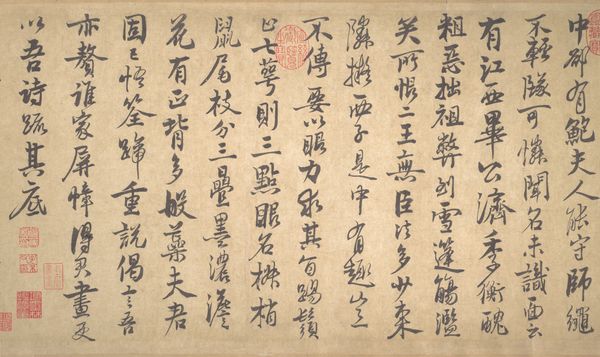 中卻有鮑夫人能守師繩
不輕墜可憐聞名未識面云
有江西畢公濟季衡醜
粗惡拙祖弊到雪蓬觴濫
矣所恨二王無臣法多少東
隣擬西子是中有趣豈
不傳要以眼力求其旨踢鬚
止七萼則三點眼名椒梢
鼠尾枝分三疊墨濃淡
花有正背多般蕊夫君
固已悟筌蹄重說偈言吾
亦贅誰家屏幛得君畫更
以吾詩疏其底